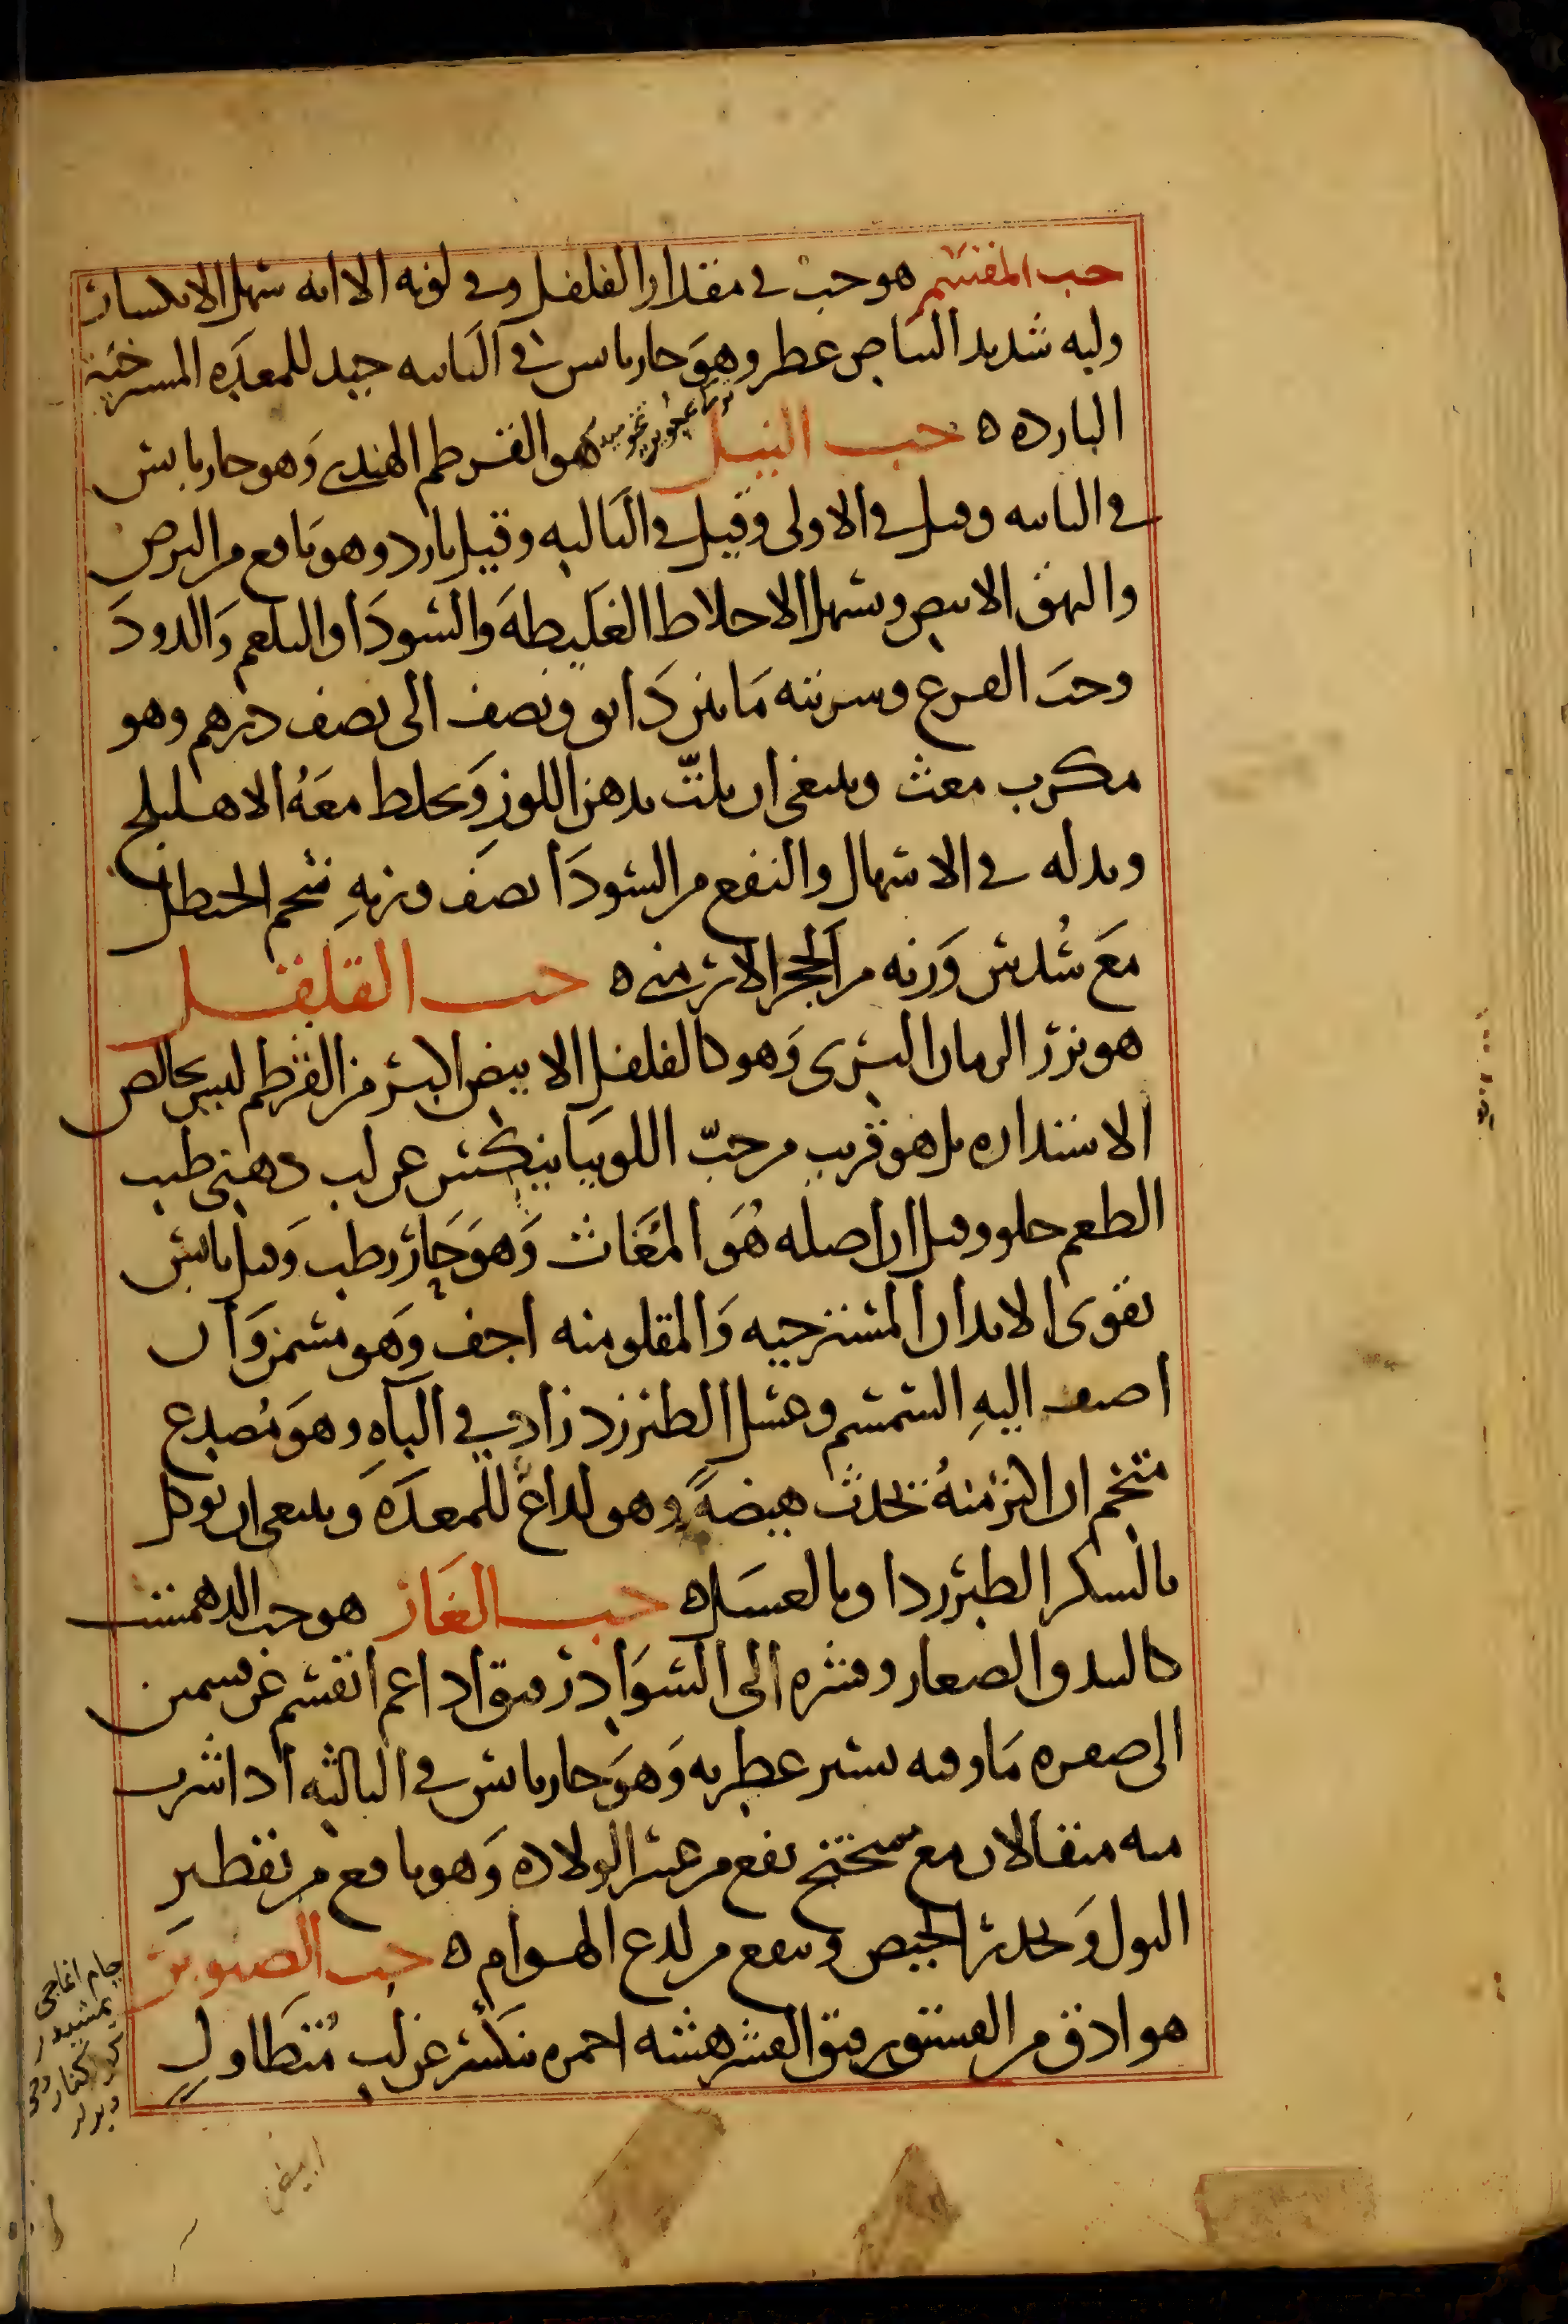 حب المقسم هو حب في مقدار الفلفل وفي لونه الا انه سهل الانكسار
ولبه شديد البياض عطر وهو حار يابس في الثانيه جيد للمعده المسترخيه
البارده ه حب النيل هو القرطم الهندي وهو حار يابس
في الثانيه وقيل في الاولى وقيل في الثالثه وقيل بارد وهو نافع من البرص
والبهق الابيض ويسهل الاخلاط الغليظه والسودا والبلغم والدود
وحب القرع وشربته ما بين دانق ونصف الى نصف درهم وهو
مكرب مغث وينبغي ان يلتّ بدهن اللوز ويخلط معه الاهليلج
وبدله في الاسهال والنفع من السودا نصف وزنه شحم الحنظل
مع سُدس وزنه من الحجر الارمني ه حب القلقل
هو بزر الرمان البري وهو كالفلفل الابيض اكبر من القرطم ليس بخالص
الاستداره بل هو قريب من حبّ اللوبيا ينكسر عن لب دهني طيب
الطعم حلو وقيل ان اصله هُو المُغاث وهو حار رطب وقيل يابس
يقوى الابدان المسترخيه والمقلو منه اجف وهو مسمن وان
اضيف اليه السمسم وعسل الطبرزد زاد في الباه وهو مُصدع
متخم ان اكثر منهُ يحدث هيضةً وهو لداغ للمعده وينبغي ان يوكل
بالسكر الطبرزد او بالعسل ه حب الغار هو حب الدهمست
كالبندق الصغار وقشره الى السواد رقيق اذا غمز انقسم عن قسمين
الى صفره ما وفيه يسير عطريه وهو حار يابس في الثالثه اذا شرب
منه مثقالان مع ميبختج نفع من عسر الولاده وهو نافع من تقطير
البول ويحدر الحيض وينفع من لدغ الهوام ه حب الصنوبر
هو ادق من الفستق رقيق القشر هشه احمره ينكسر عن لب مُتطاول
جام اغاجي
يمشيدر
ابيض